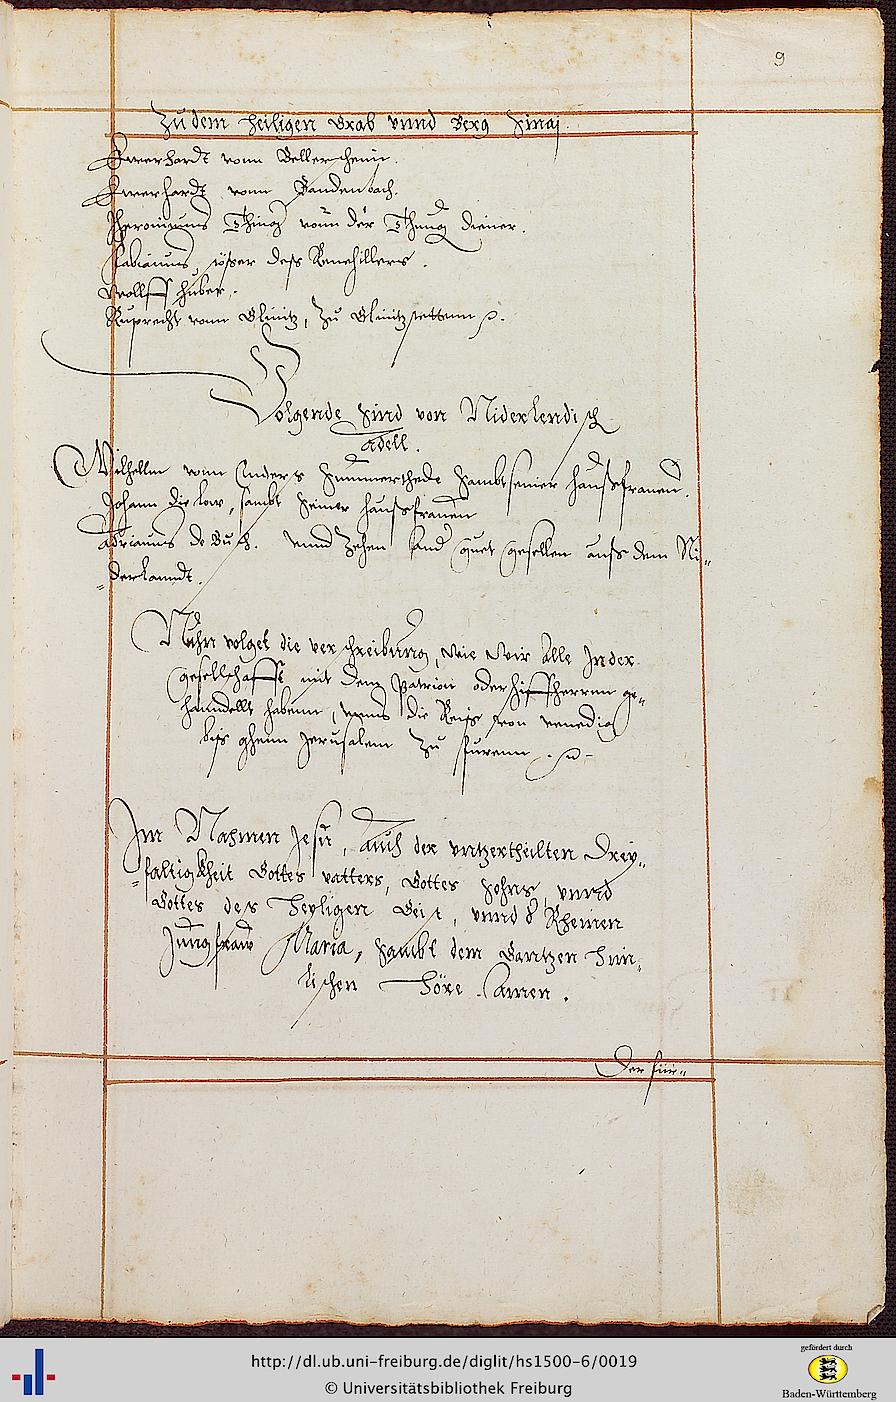 9
Zu dem heiligen Grab vnnd Berg Sinaj.
Ewerhardt vonn
Ewerhardt vonn
Jheronimus vonn der diener.
Fabianus, deß
Wolff Huber.
Ruprecht vonn Gleinitz, Zu Gleinitzstettenn
Volgende sind von Niderlendisch
Adell.
Wilhelm vonn sambt seiner haußfrauen.
Johann die low, sambt seiner haußfrauen
Adrianus de Buch. vnnd Zehen Annder guet gesellen auß dem Ni„
„derlanndt.
Nuhn volget die verschreibung, wie wir alle In der
gesellschafft mit dem Patrion oder schiffherrnn ge„
hanndellt habenn, vnns die Reiß von venedig
biß ghenn Jerusalem Zu fürenn
Im Nahmen Jesu, auch der vntzertheilten Drey„
„faltigkheit Gottes vatters, Gottes sohns vnnd
Gottes des heyligen Geist, vnnd d Rheinen
Jungfraw Maria, sambt dem Gantzen him„
lischen höre. Amen.
Der für„
http://dl.ub.uni-freiburg.de/diglit/hs1500-6/0019
© Universitätsbibliothek Freiburg
gefördert durch
Baden-Württemberg